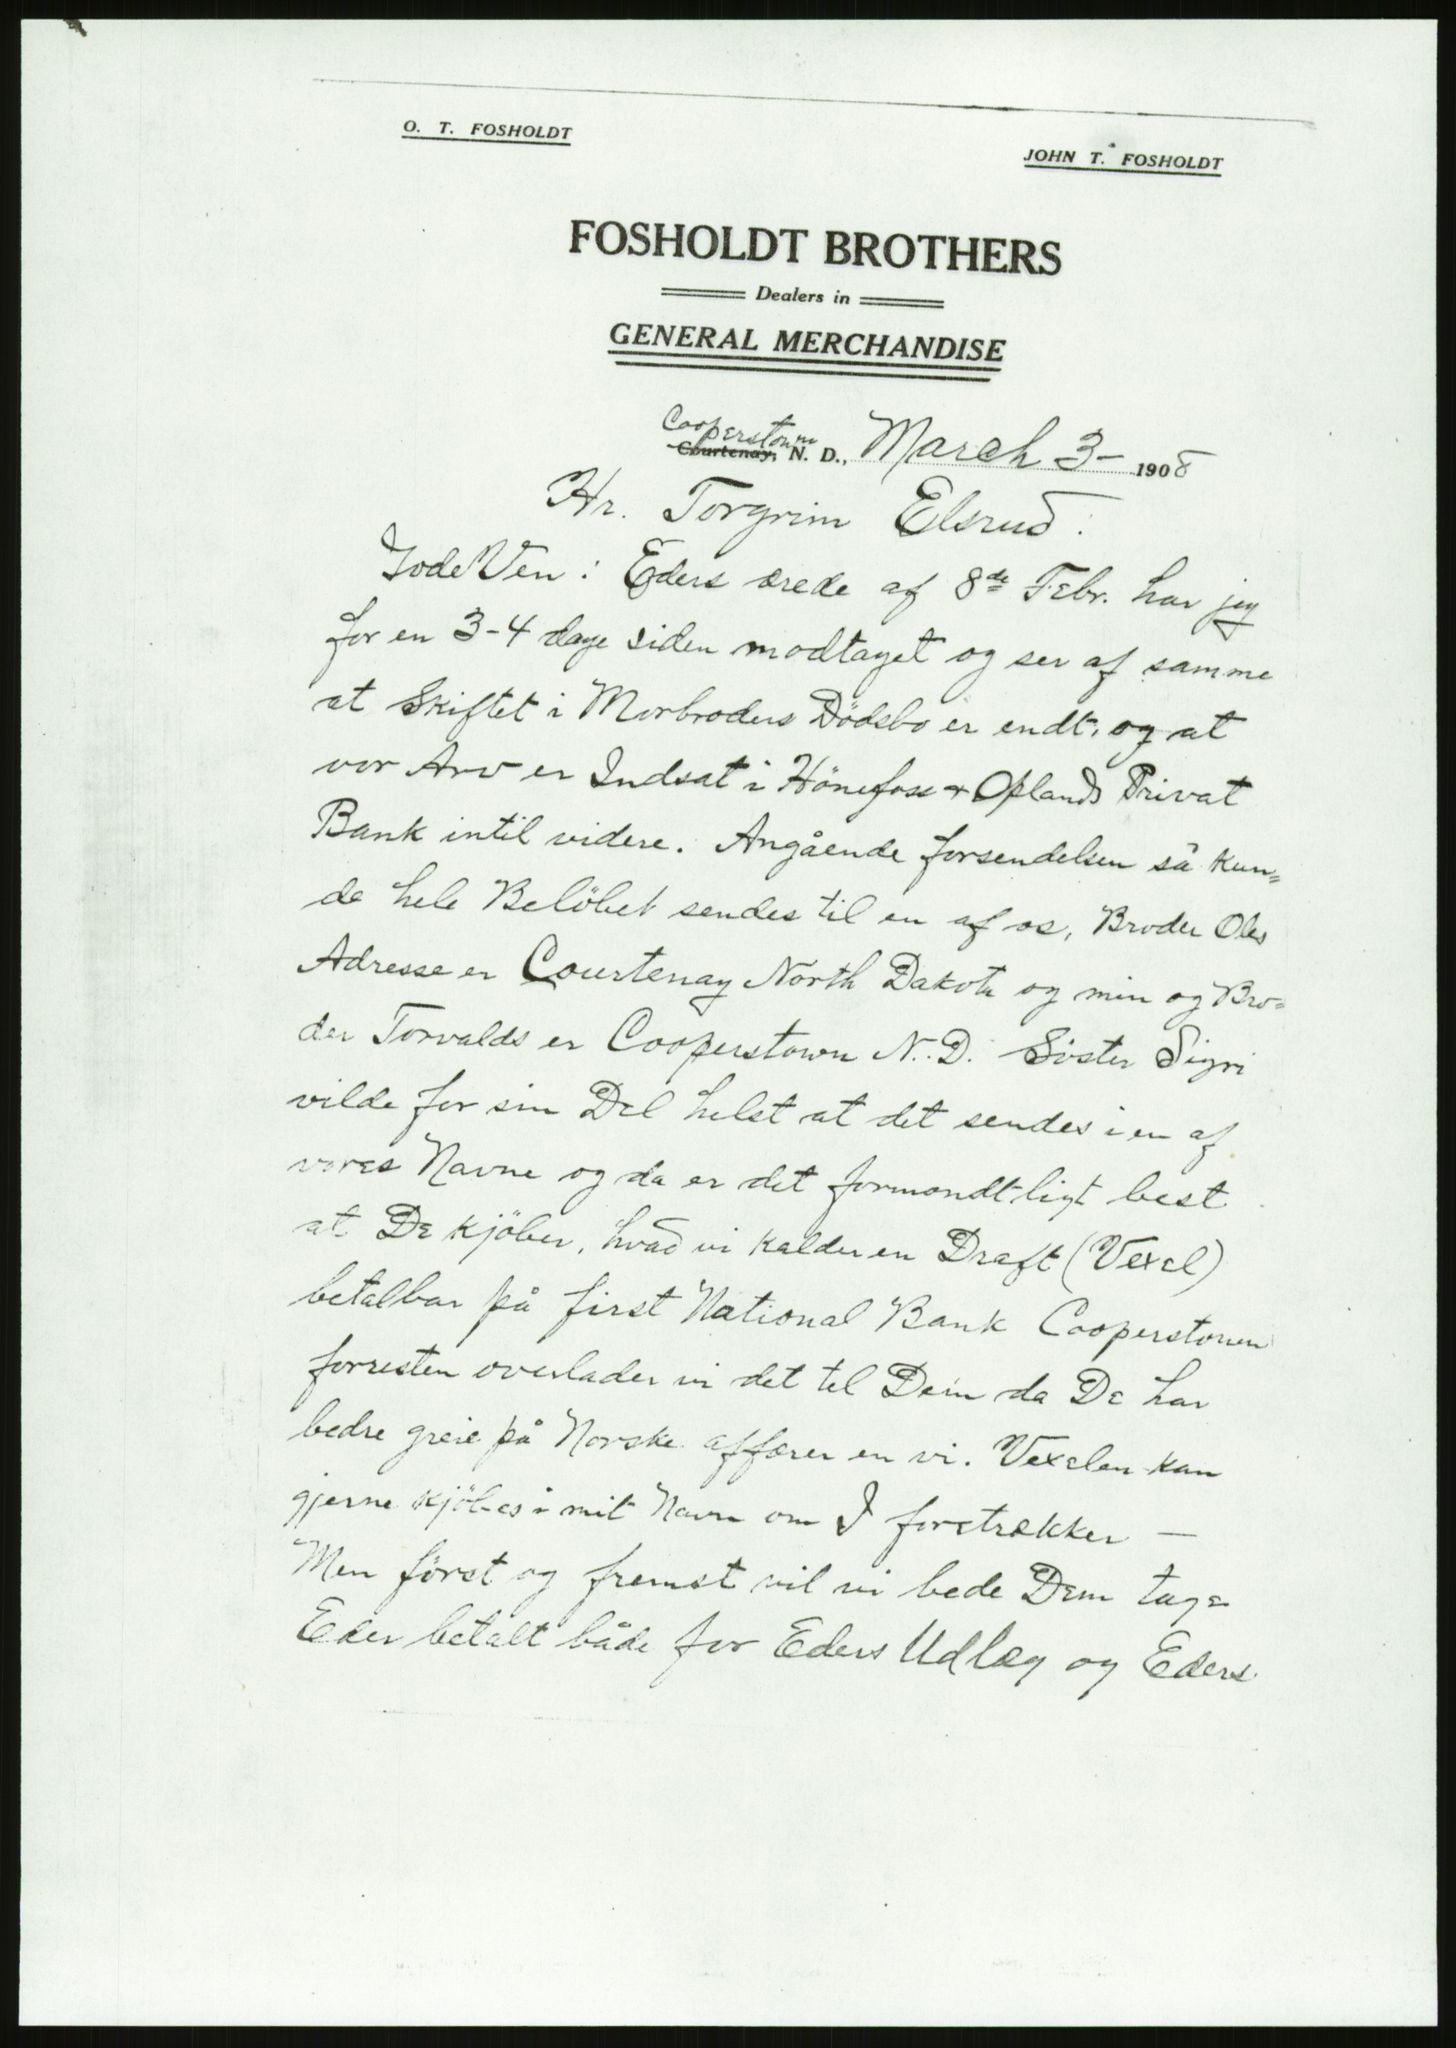 O. T. FOSHOLDT
JOHN T. FOSHOLDT
FOSHOLDT BROTHERS
Dealers in
GENERAL MERCHANDISE
Cooperstown
Courtenay, N. D., March 3- 1908
Hr. Torgrim Elsrud.
Gode Ven: Eders ærede af 8de Febr. har jeg
for en 3-4 dage siden modtaget og ser af samme
at Skiftet i Morbroders Dödsbo er endt, og at
vor Arv er Indsat i Hönefoss & Oplands Privat
Bank intil videre. Angående forsendelsen så kun=
de hele Belöbet sendes til en af os, Broder Oles
Adresse er Courtenay North Dakota og min og Bro=
der Torvalds er Cooperstown N. D. Söster Sigri
vilde for sin Del helst at det sendes i en af
vores Navne og da er det formondtligt best
at De kjöber, hvad vi kalder en Draft (Vexel)
betalbar på first National Bank Cooperstown
forresten overlader vi det til Dem da De har
bedre greie på Norske affærer en vi. Vexelen kan
gjerne kjöbes i mit Navn om I foretrækker —
Men först og fremst vil vi bede Dem tage
Eder betalt både for Eders Udlæg og Eders